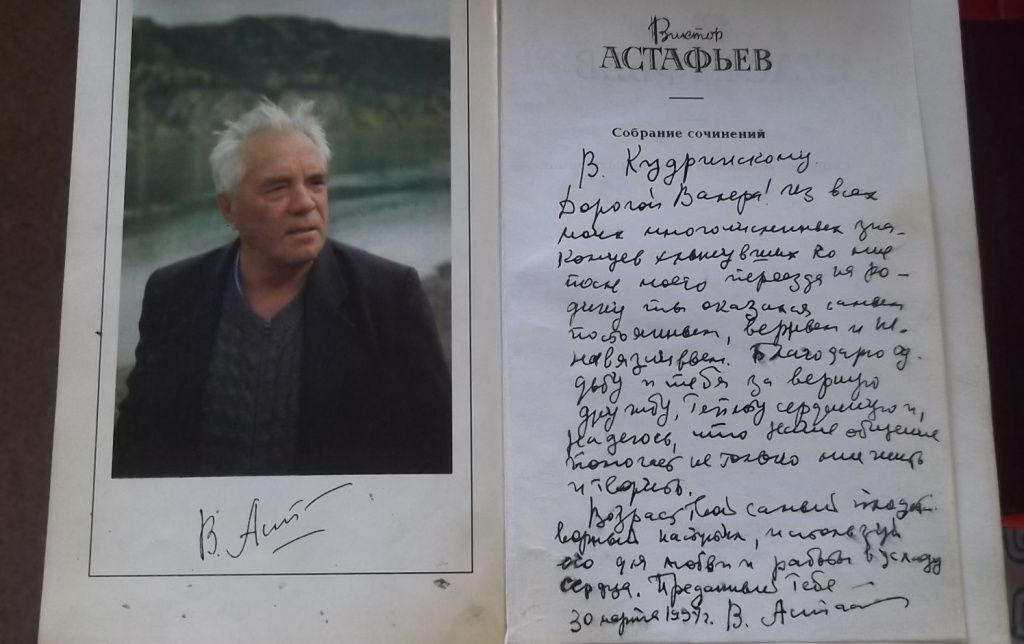 В. Аст
Виктор
АСТАФЬЕВ
Собрание сочинений
В. Кудринскому.
Дорогой Валера! Из всех
моих многочисленных зна-
комцев хлынувших ко мне
после моего переезда на ро-
дину ты оказался самым
постоянным, верным и не-
навязчивым. Благодарю су-
дьбу и тебя за верную
дружбу, теплоту сердечную и,
надеюсь, что наше общение
помогает не только мне жить
и творить.
Возраст твой самый плодот-
ворный наступил, используй
его для любви и работы в усладу
сердца. Преданный тебе —
30 марта г. В. Астаф